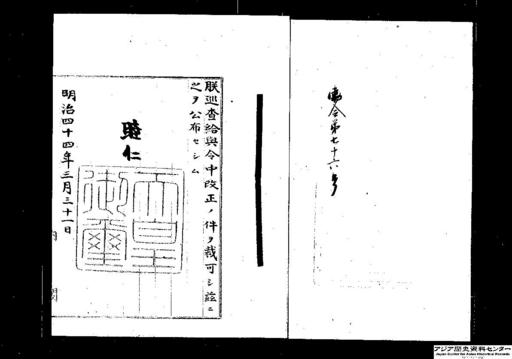 勅令第七十六号
朕巡査給與令中改正ノ件ヲ裁可シ茲ニ
之ヲ公布セシム
睦仁
天皇御璽
明治四十四年三月三十一日
内
閣
アジア歴史資料センター
Japan Center for Asian Historical Records